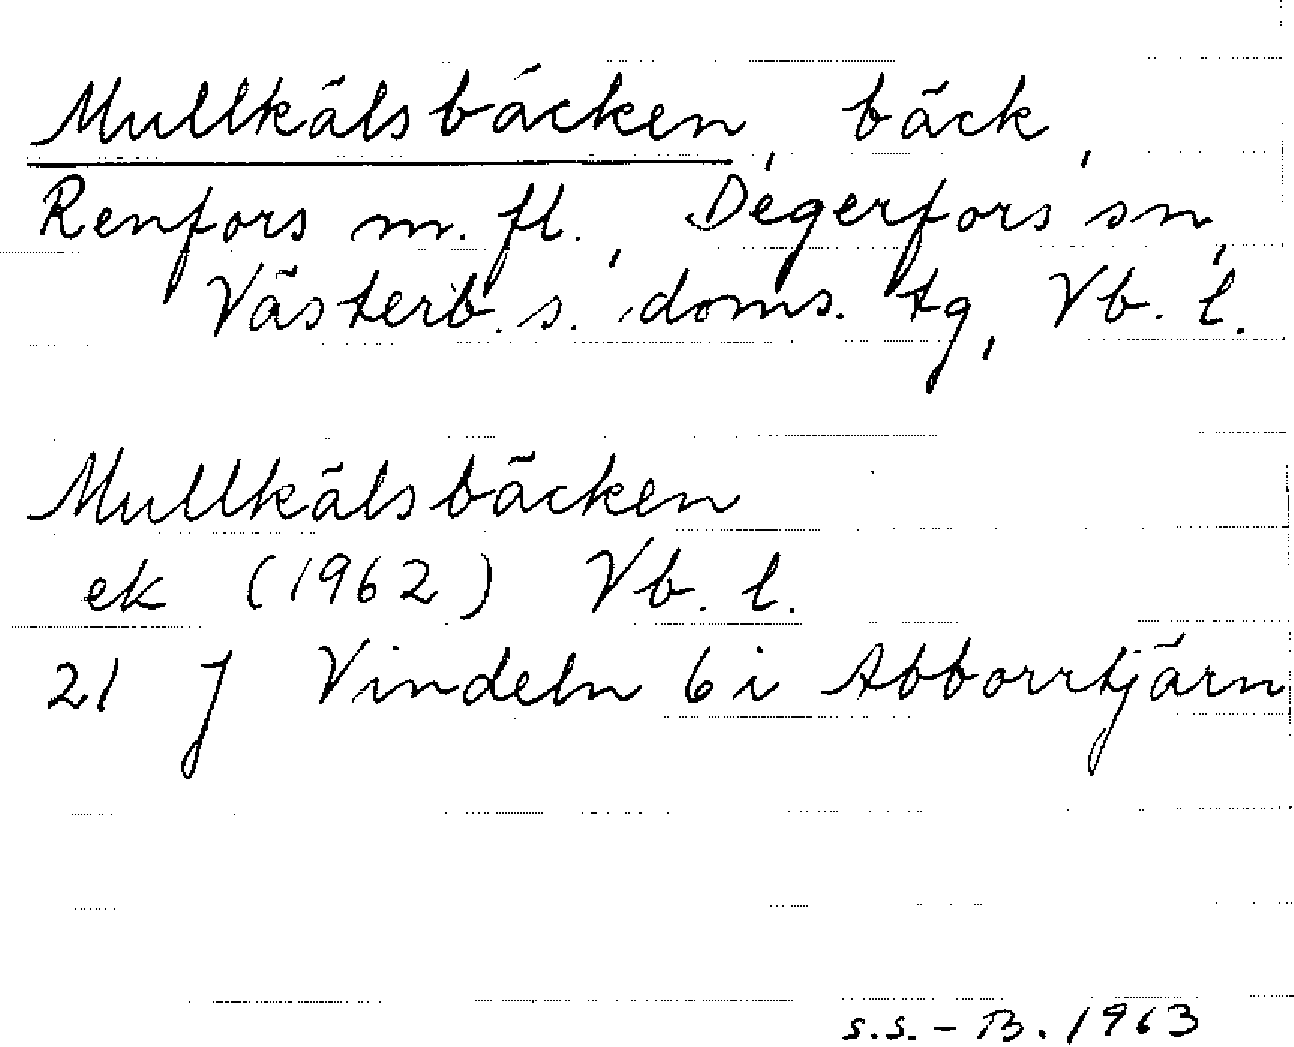 Mullkälsbäcken, bäck,
Renfors m. fl., Degerfors sn,
Västerb. s. doms. tg, Vb. l.
Mullkälsbäcken
ek (1962) Vb. l.
21 J Vindeln 6 i Abborrtjärn
s.s. - B. 1963